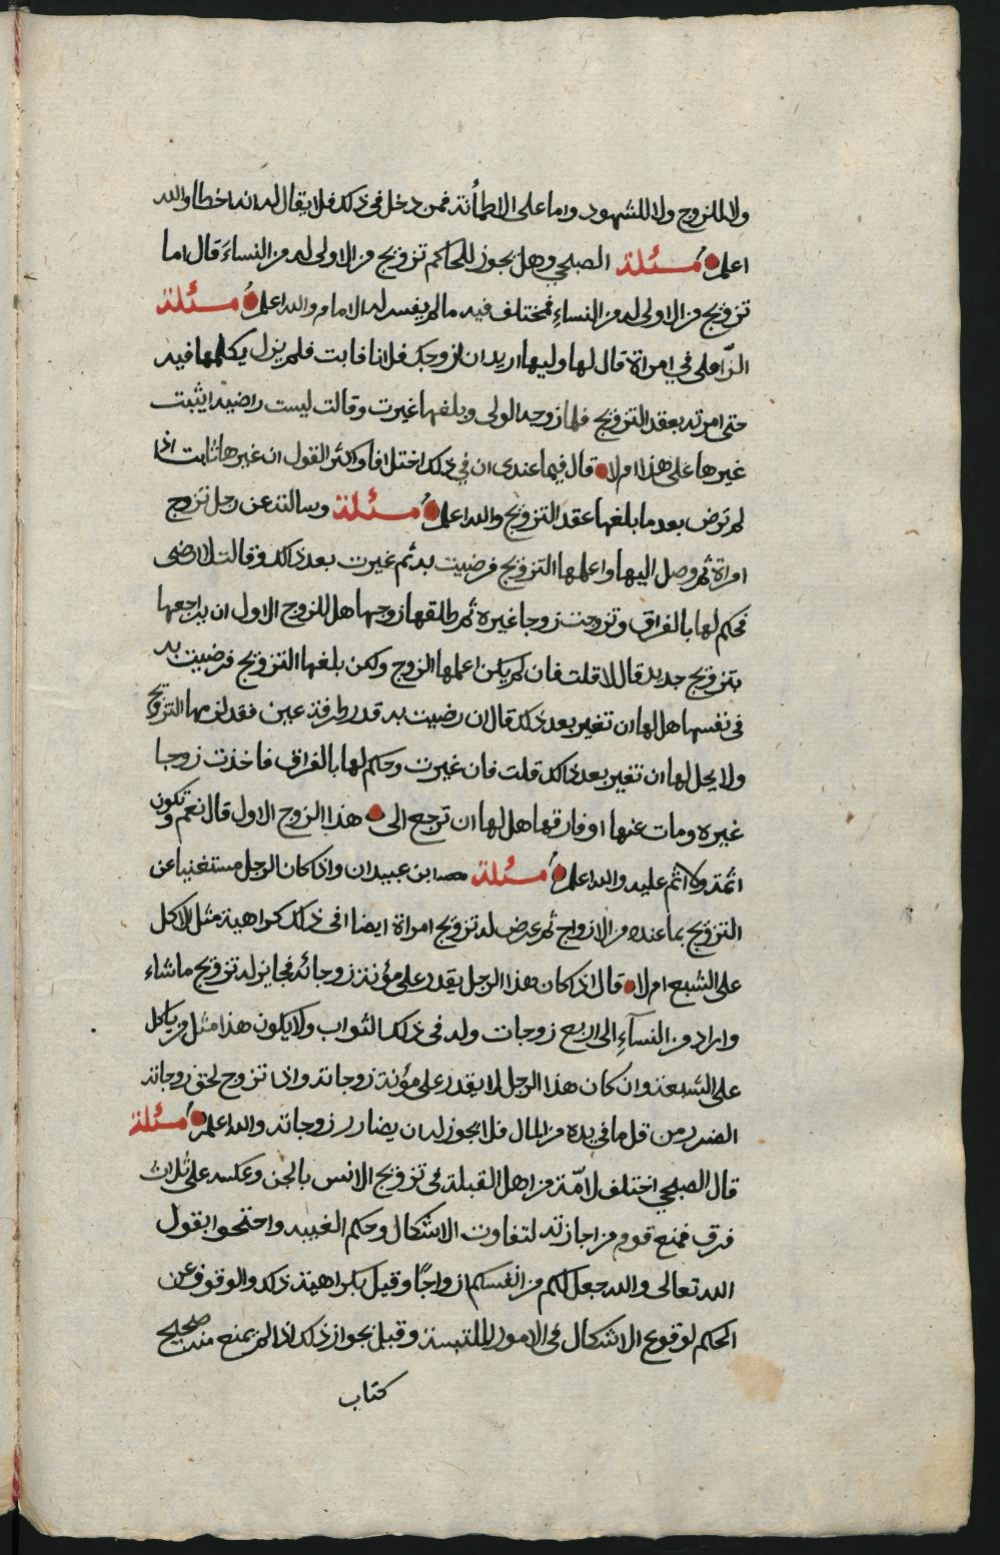 ولا للزوج ولا للشهود واما على الاطمأنة فمن دخل في ذلك فلا يقال له انه اخطا والله
اعلم مسئلة الصبحي وهل يجوز للحاكم تزويج من لا ولي له من النساء قال اما
تزويج من لا ولي له من النساء فمختلف فيه ما لم يفسر له الامام والله اعلم مسئلة
الزاملي في امراة قال لها وليها اريد ان ازوجك فلانا فابت فلم يزل يكلمها فيه
حتى امرته بعقد التزويج فلما زوجه الولي وبلغها غيرت وقالت ليست راضية ايثبت
غيرها على هذا ام لا قال فيما عندي ان في ذلك اختلافا واكثر القول ان غيرها ثابت اذا
لم ترض بعد ما بلغها عقد التزويج والله اعلم مسئلة وسالته عن رجل تزوج
امراة ثم وصل اليها واعلمها التزويج فرضيت به ثم غيرت بعد ذلك وقالت لا ارضى
فحكم لها بالفراق وتزوجت زوجا غيره ثم طلقها زوجها هل للزوج الاول ان يراجعها
بتزويج جديد قال لا قلت فان لم يكن اعلمها الزوج ولكن بلغها التزويج فرضيت به
في نفسها هل لها ان تغير بعد ذلك قال ان رضيت به قدر طرفة عين فقد لزمها التزويج
ولا يحل لها ان تغير بعد ذلك قلت فان غيرت وحكم لها بالفراق فاخذت زوجا
غيره ومات عنها او فارقها هل لها ان ترجع الى هذا الزوج الاول قال نعم وتكون
اثمة ولا اثم عليه والله اعلم مسئلة ابن عبيدان واذا كان الرجل مستغنيا عن
التزويج بما عنده من الازواج ثم عرض له تزويج امراة ايضا افي ذلك كراهية مثل الاكل
على الشبع ام لا قال اذا كان هذا الرجل يقدر على مؤنة زوجاته فجايز له تزويج ما شاء
واراد من النسآء الى اربع زوجات وله في ذلك الثواب ولا يكون هذا مثل من ياكل
على الشبعة وان كان هذا الرجل لا يقدر على مؤنة زوجاته واذا تزوج لحق زوجاته
الضرر من قل ما في يده من المال فلا يجوز له ان يضارر زوجاته والله اعلم مسئلة
قال الصبحي اختلف لامّة من اهل القبلة في تزويج الانس بالجن وعكسه على ثلاث
فرق فمنع قوم من اجازته لتفاوت الاشكال وحكم الغيبه واحتجوا بقول
الله تعالى والله جعل لكم من انفسكم ازواجًا وقيل بكراهية ذلك والوقوف عن
الحكم لوقوع الاشكال في الامور الملتبسة وقيل بجواز ذلك اذا لم يمنع منه صحيح
كتاب